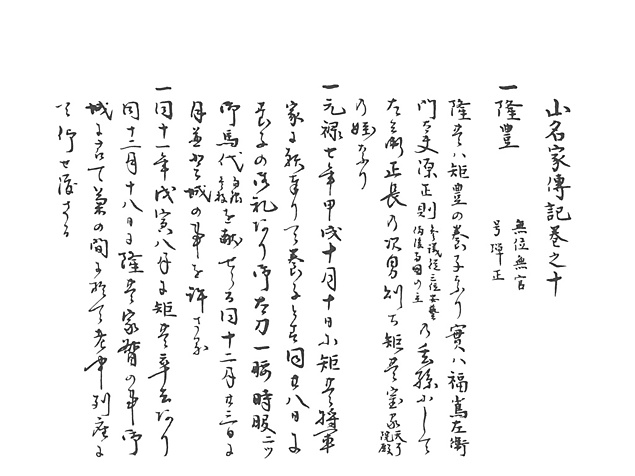 山名家傳記巻之十
一隆豊
無位無官
号弾正
隆豊ハ矩豊の養子なり實ハ福嶌左衛
門大夫源正則
参議従三位安藝
備後両国の主
の玄孫にして
左兵衛正長の次男則ち矩豊室家
天了
院殿
の姪なり
一元禄七年甲戌十月十日に矩豊將軍
家に願奉りて養子とす同廿八日に
養子の御礼あり御太刀一腰時服二ツ
御馬代
を献せらる同十二月廿三日に
月並登城の事を許さる
一同十一年戊寅八月に矩豊卒去あり
同十二月十八日に隆豊家督の事御
城に て菊の間に於て老中列座に
て仰せ渡さる